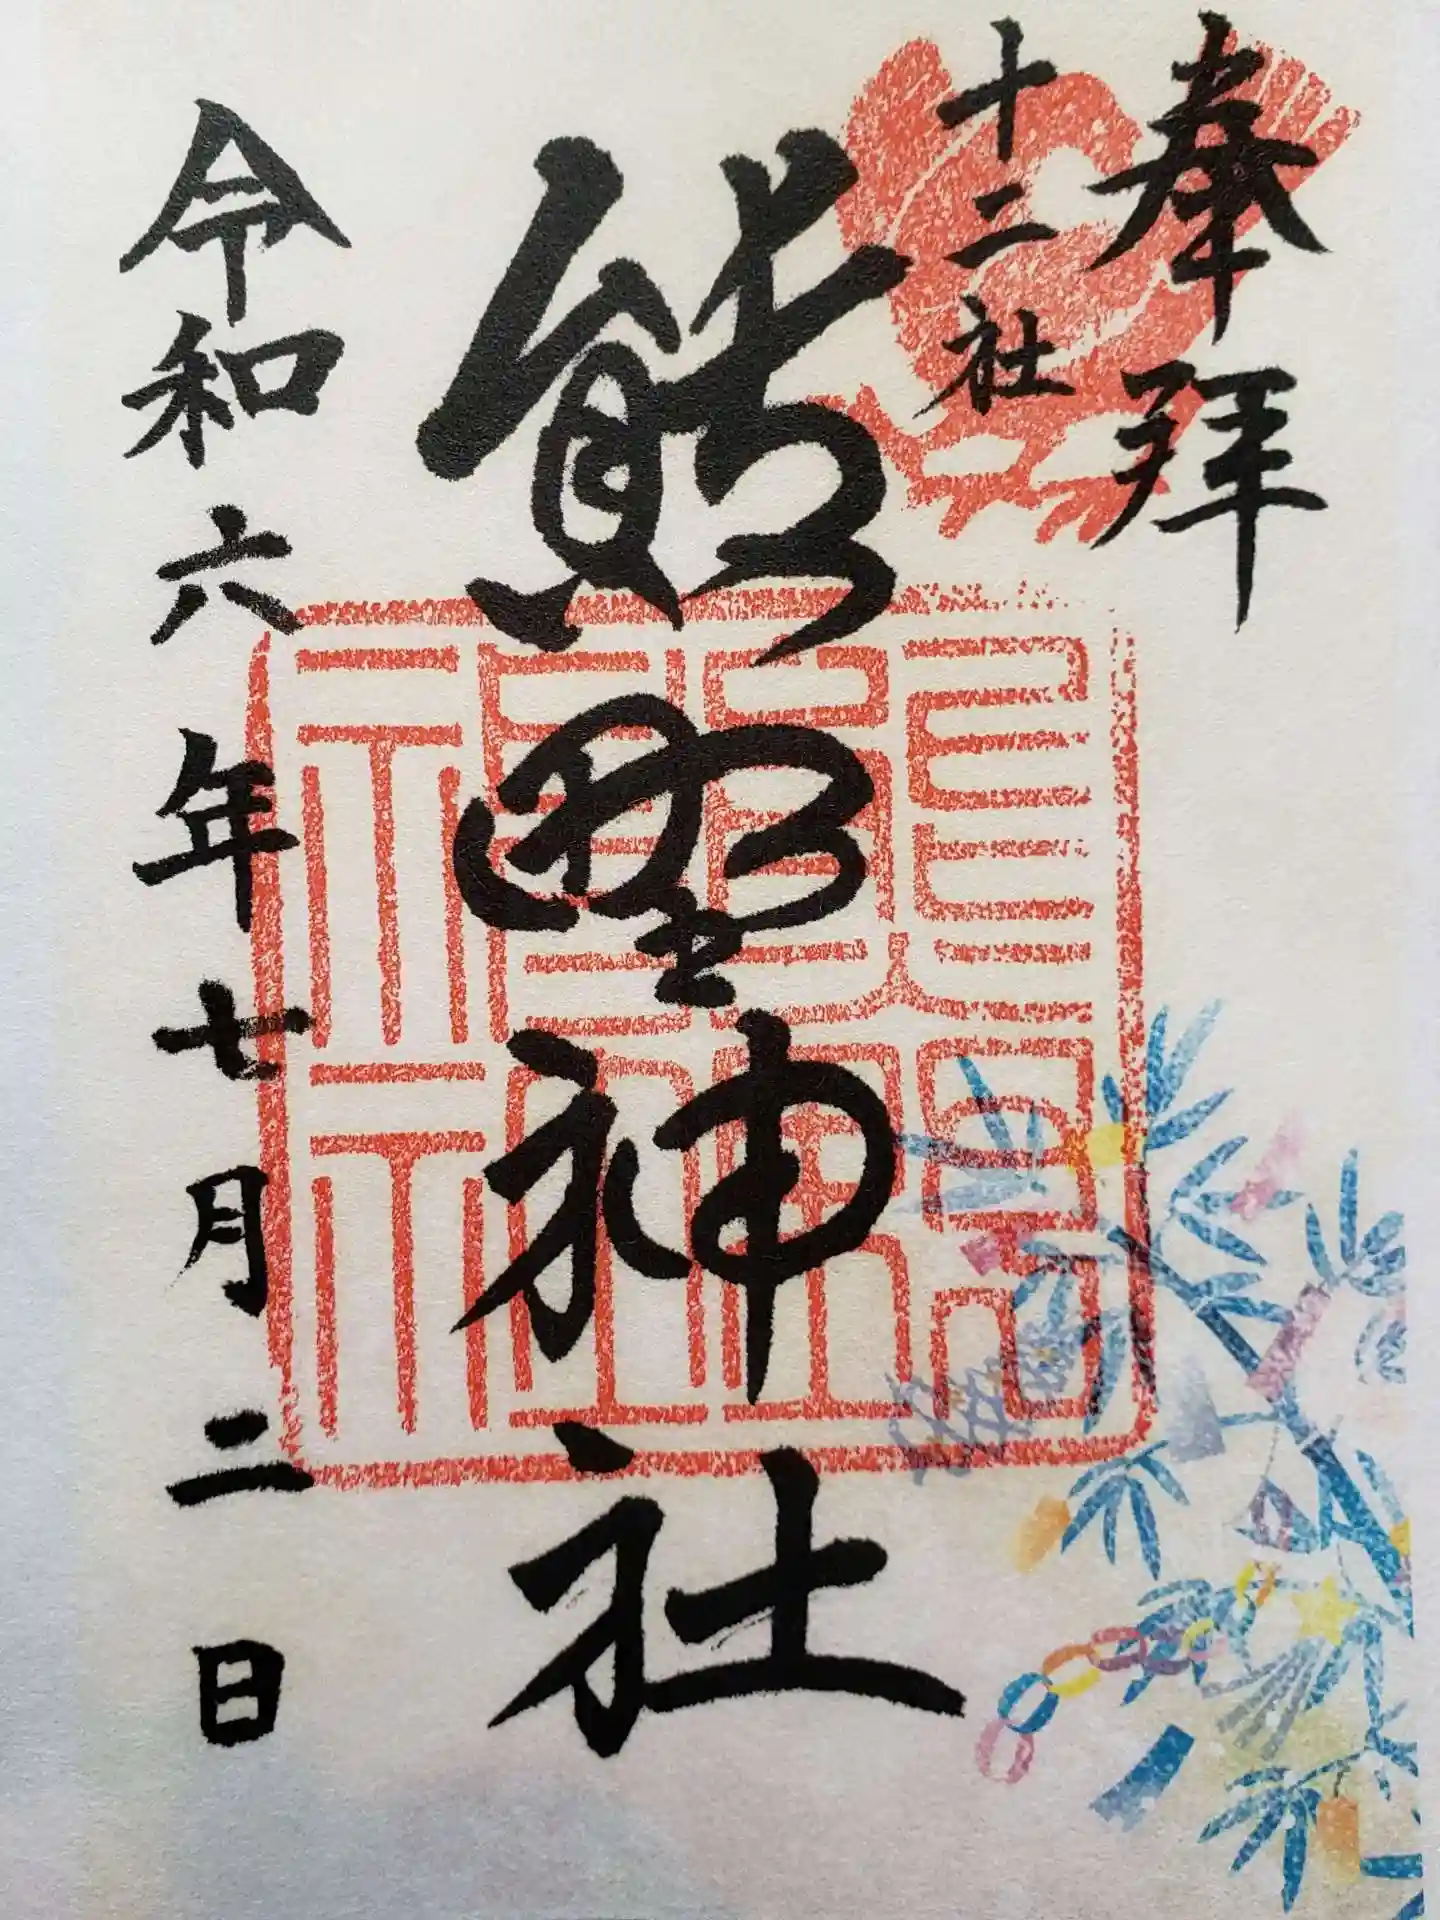 奉拝
十二社
熊野神社
令和六年七月二日